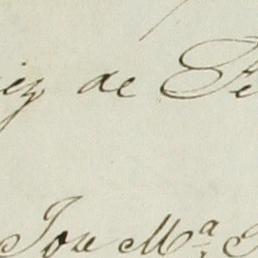 iez de Fe
Jose Mª